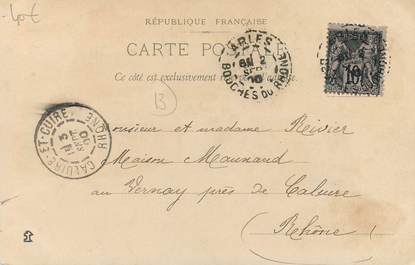 40€
RÉPUBLIQUE FRANÇAISE
CARTE POSTALE
Ce côté est exclusivement réservé à l'adresse.
ARLES
8M 2
SEPT
00
BOUCHES DU RHÔNE
10
B
CALUIRE-ET-CUIRE
3
SEPT
00
RHÔNE
Monsieur et madame Reivier
Maison Maunand
au Vernay près de Caluire
(Rhône)